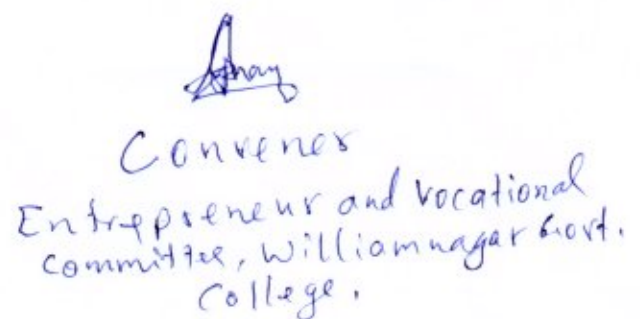 Convener
Entrepreneur and vocational
committee, Williamnagar Govt.
College.